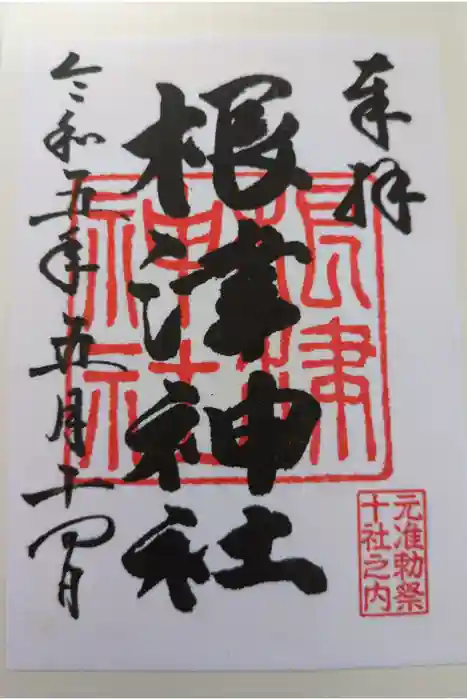 奉拝
根津神社
令和五年五月二十四日
根津
神社
元准勅祭
十社之内